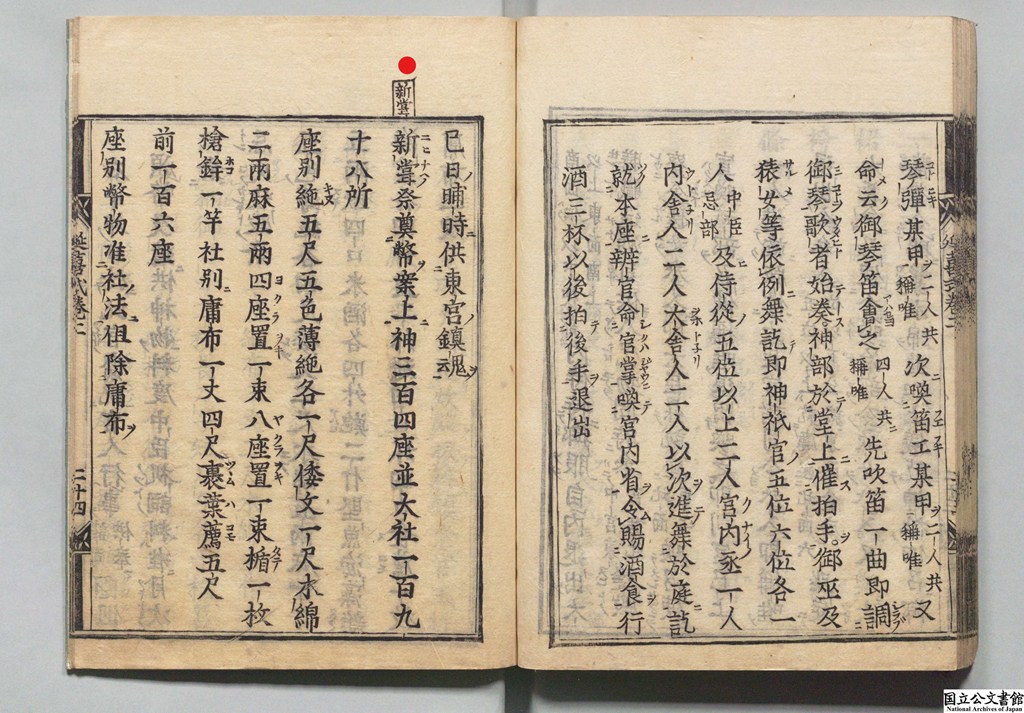 琴彈某甲二人共稱唯次喚笛工某甲二人共稱唯又
命云御琴笛會之四人共稱唯先吹笛一曲即調
御琴歌者始奏神部於堂上催拍手御巫及
猿女等依例舞訖即神祇官五位六位各一
人中臣忌部及侍從五位以上二人宮內丞一人
內舍人二人大舍人二人以次進舞於庭訖
就本座辨官命官掌喚宮內省令賜酒食行
酒三杯以後拍後手退出
巳日晡時供東宮鎮魂云
新嘗
新嘗祭奠幣案上神三百四座並大社一百九
十八所
座別絁五尺五色薄絁各一尺倭文一尺木綿
二兩麻五兩四座置一束八座置一束楯一枚
槍鉾一竿社別庸布一丈四尺裹葉薦五尺
前一百六座
座別幣物准社法徂除庸布
延喜式卷二
二十四
国立公文書館
National Archives of Japan